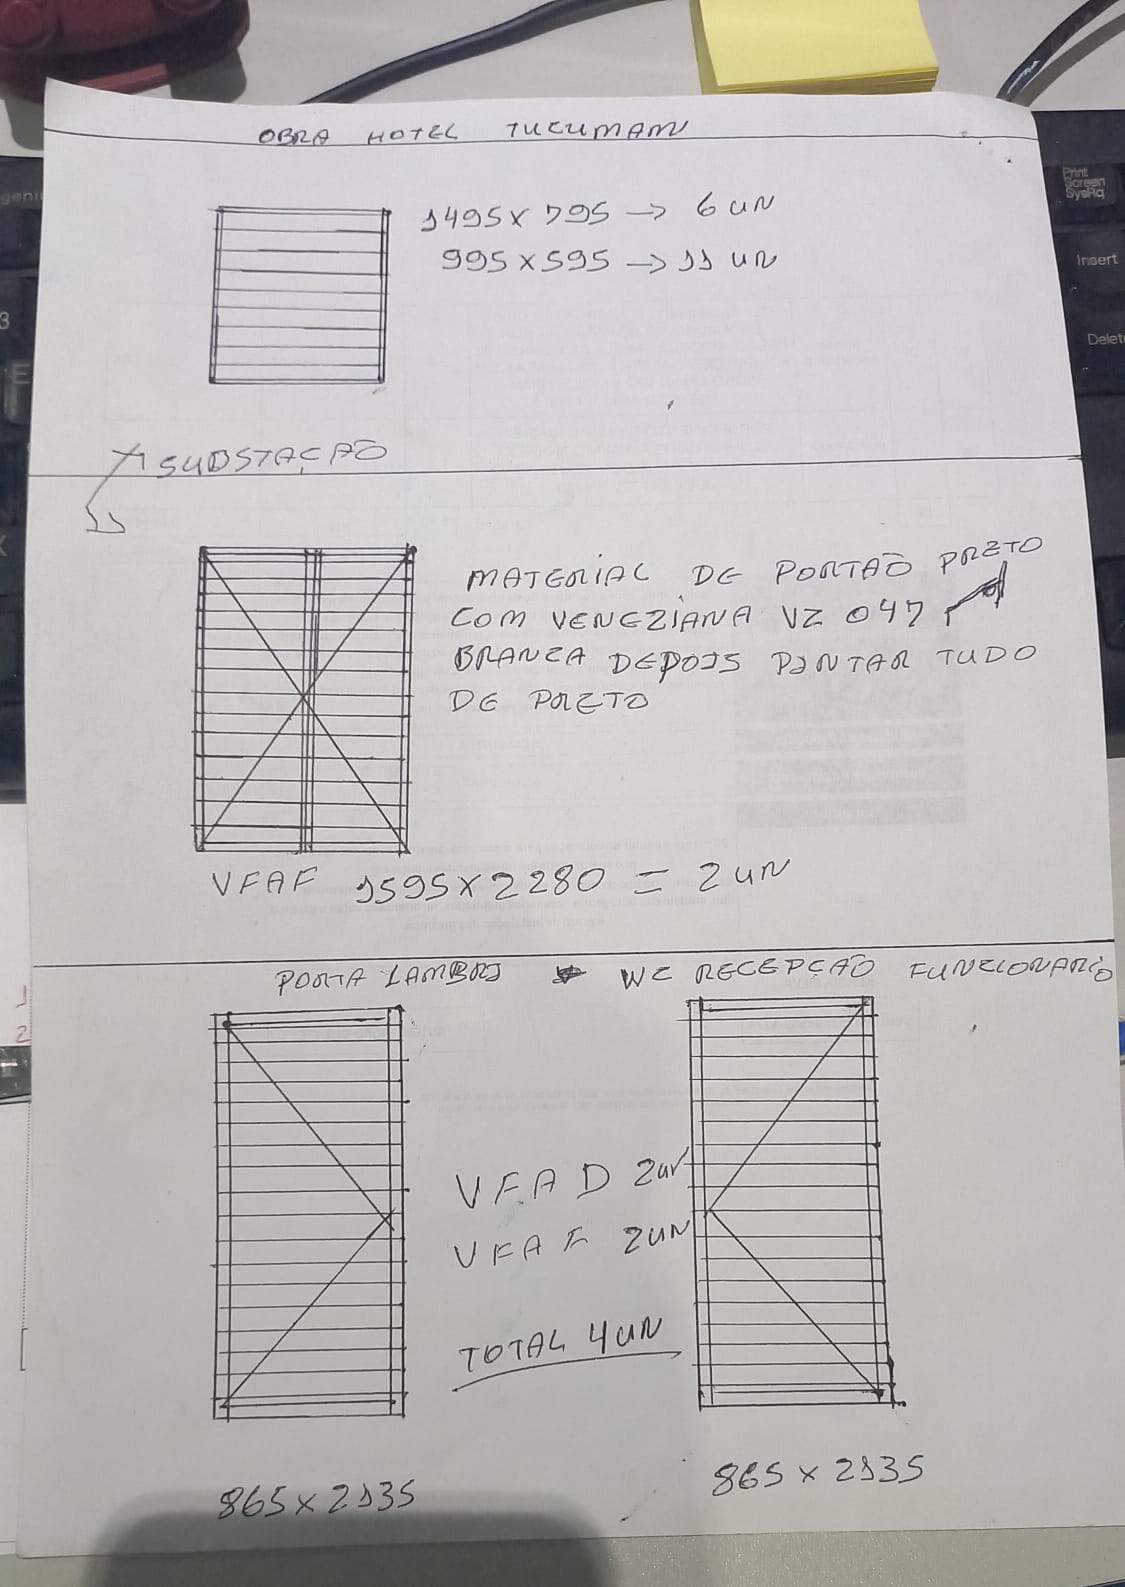 OBRA HOTEL TUCUMAM
1495 x 795 → 6 UN
995 x 595 → 11 UN
SUDSTAÇÃO
MATERIAL DE PORTÃO PRETO
COM VENEZIANA VZ 047
BRANCA DEPOIS PINTAR TUDO
DE PRETO
VFAF 1595 x 2280 = 2 UN
PORTA LAMBRI WC RECEPÇÃO FUNCIONARIO
VFA D 2UN
VFA F 2UN
TOTAL 4 UN
865 x 2135
865 x 2135
Print
Screen
SysRq
Insert